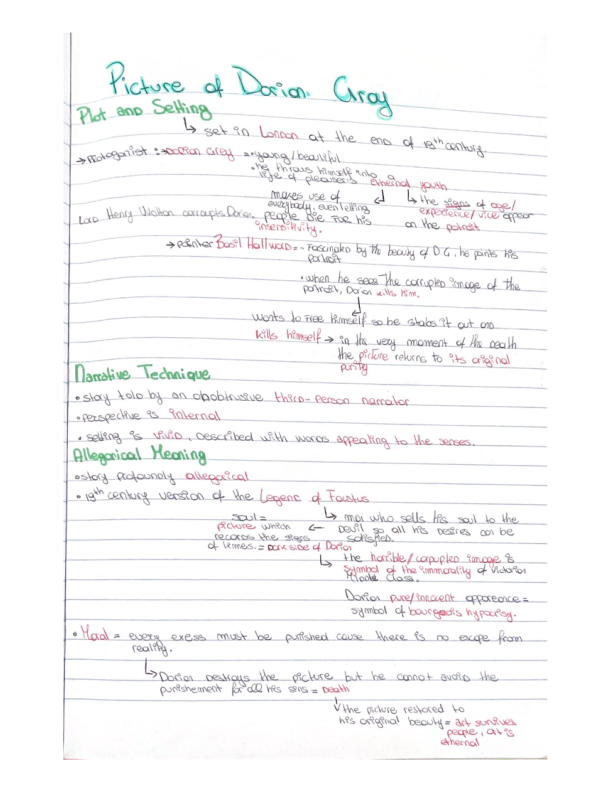 Picture of Dorian Gray
Plot and Setting
↳ set in London at the end of 19th century.
→ protagonist :→ Dorian Grey = • young / beautiful
• he throws himself into a
life of pleasures ethernal youth
makes use of
everybody, even letting
people die for his
insensitivity.
↳ the signs of age/
experience/ vice appear
on the potrait
Lord Henry Wotton corrupts Dorian.
→ painter Basil Hallward = - Fascinated by the beauty of D.G, he paints his
portrait
• when he sees the corrupted image of the
potrait, Dorian kills him.
wants to free himself so he stabs it out and
kills himself → in the very moment of the death
the picture returns to its original
purity
Narrative Technique
• story told by an obobtrusive third-person narrator
• perspective is internal
• setting is vivid, described with words appealing to the senses.
Allegorical Meaning
• story profoundly allegorical
• 19th century version of the Legend of Faustus
↳ man who sells his soul to the
Devil so all his desires can be
satisfied.
soul =
picture which ←
records the signs
of crimes. = Dark side of Dorian
↳ the horrible/ corrupted image is
symbol of the immorality of Victorian
Middle Class.
Dorian pure/innocent apparence =
symbol of bourgeois hypocrisy.
• Moral = every excess must be punished cause there is no escape from
reality.
↳ Dorian destroys the picture but he cannot avoid the
punishement for all his sins = Death
↓ the picture restored to
his original beauty = art survives
people, art is
ethernal